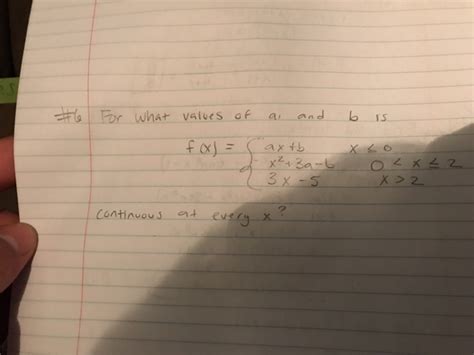 #6 For what values of a, and b is
f(x) = { ax+b x ≤ 0
x²+3a-b 0 < x ≤ 2
3x-5 x > 2
continuous at every x?